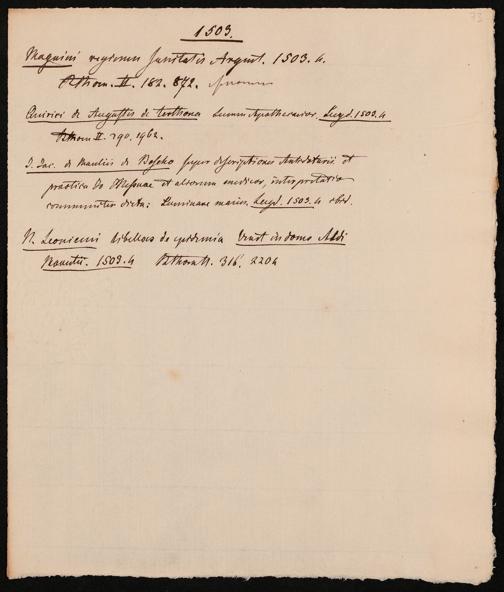 1503.
Magnini regimen Sanitatis Argent. 1503. 4.
Rthom. II. 182. 872.
Quirici de Augustis de Terthona Lumen Apothecarior. Lugd. 1503. 4
Rthom II. 290. 1962.
J. Jac. de Manliis de Bosko super descriptiones Antidotarii et
practica Jo Mesuae et aliorum medicor, interpretatio
communiter dicta: Luminare maius. Lugd. 1503. 4 ibid.
N. Leoniceni libellus de epidemia Venet in domo Aldi
Manutii. 1503. 4 Rthom II. 316. 2204